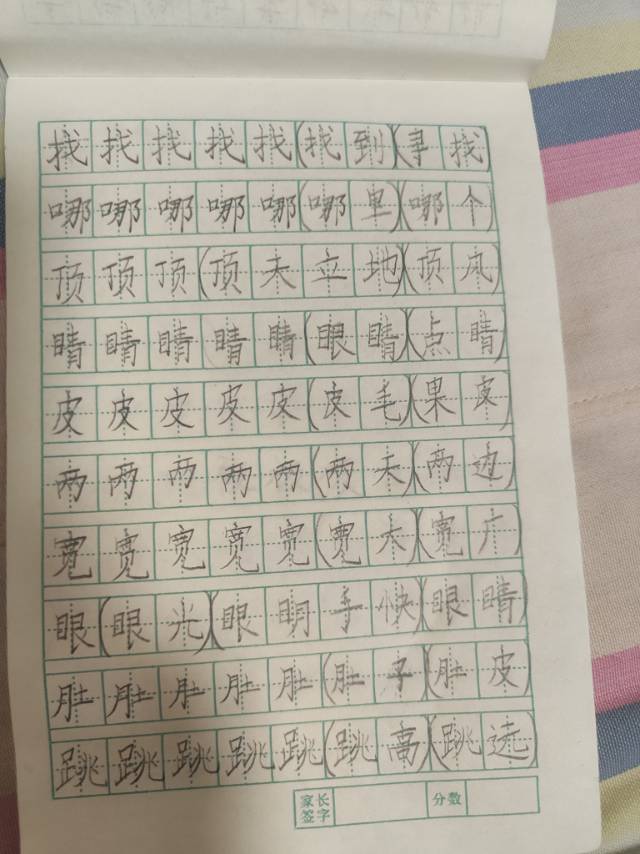 找找找找找(找到)(寻找)
哪哪哪哪哪(哪里)(哪个)
顶顶顶(顶天立地)(顶风)
睛睛睛睛睛(眼睛)(点睛)
皮皮皮皮皮(皮毛)(果皮)
两两两两两(两天)(两边)
宽宽宽宽宽(宽大)(宽广)
眼(眼光)(眼明手快)(眼睛)
肚肚肚肚肚(肚子)(肚皮)
跳跳跳跳跳(跳高)(跳远)
家长签字 分数